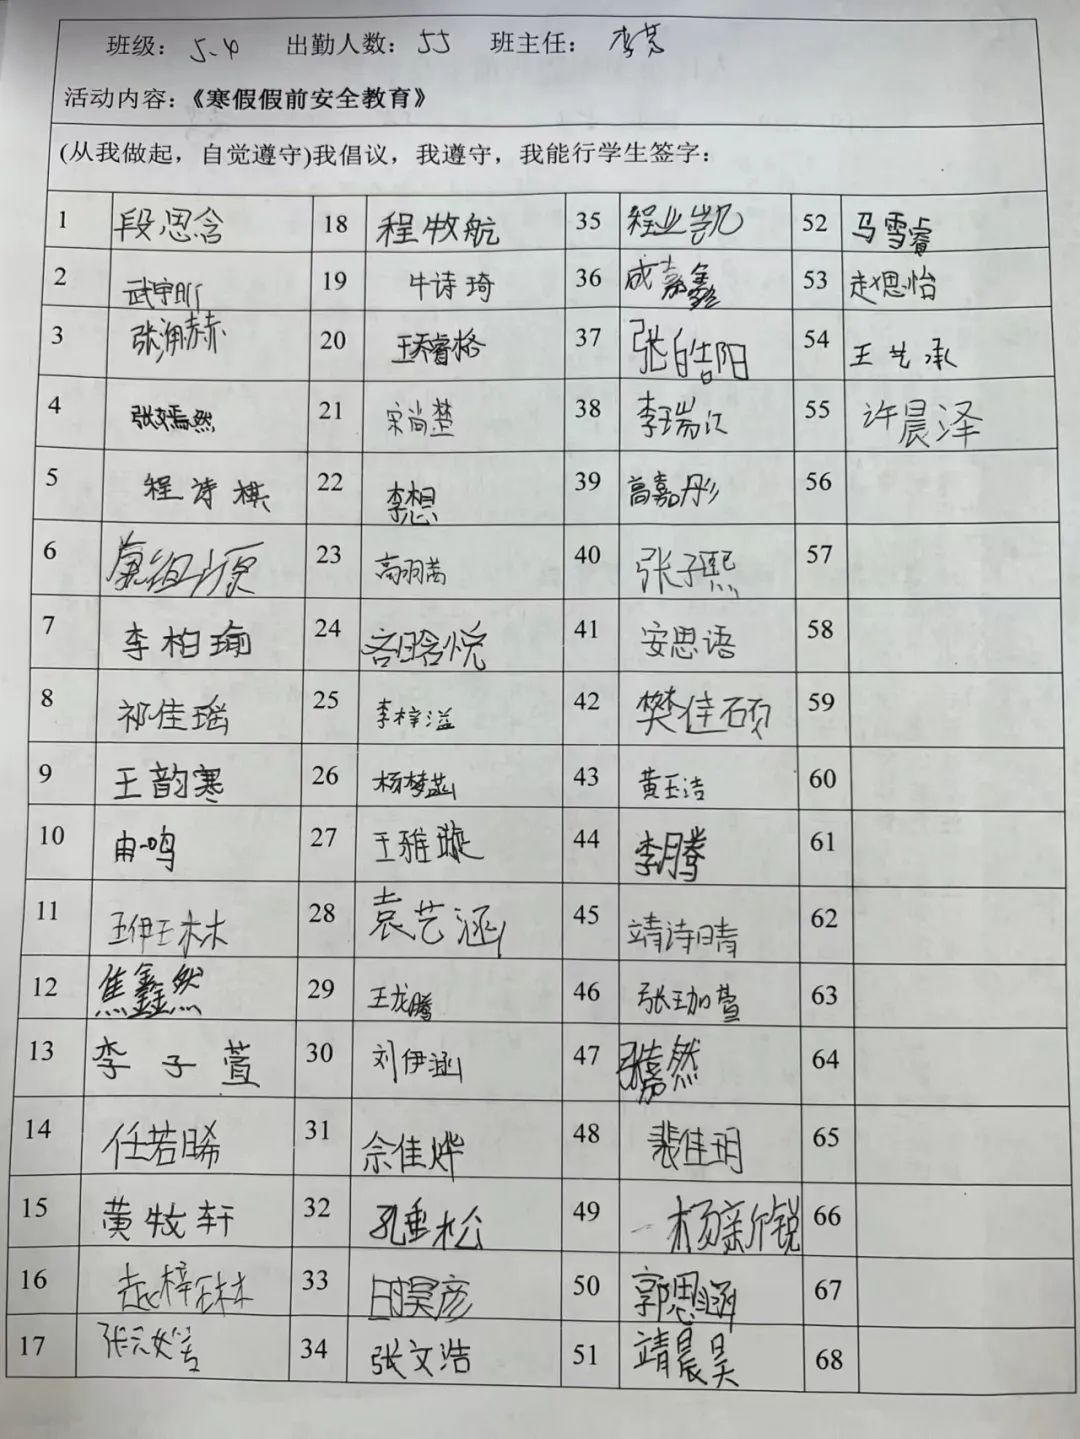 班级：5-4 出勤人数：55 班主任：李芳
活动内容：《寒假假前安全教育》
(从我做起，自觉遵守)我倡议，我遵守，我能行学生签字：
1 段思含 18 程牧航 35 程业凯 52 马雪睿
2 武宇昕 19 牛诗琦 36 成嘉鑫 53 赵思怡
3 张洧赫 20 王乔睿格 37 张皓阳 54 王艺承
4 张嫣然 21 宋尚楚 38 李瑞江 55 许晨泽
5 程诗棋 22 李想 39 高嘉彤 56
6 23 高羽芮 40 张子熙 57
7 李柏瑜 24 吝晗悦 41 安思语 58
8 祁佳瑶 25 李梓溢 42 樊佳硕 59
9 王韵寒 26 杨梦菡 43 黄玉洁 60
10 冉一鸣 27 王雅璇 44 李腾 61
11 王伊琳 28 袁艺涵 45 靖诗晴 62
12 焦鑫然 29 王龙腾 46 张珈萱 63
13 李子萱 30 刘伊涵 47 张嘉然 64
14 任若晞 31 佘佳烨 48 裴佳玥 65
15 黄牧轩 32 孔垂松 49 杨新锐 66
16 赵梓琳 33 50 郭思涵 67
17 34 张文浩 51 靖晨昊 68